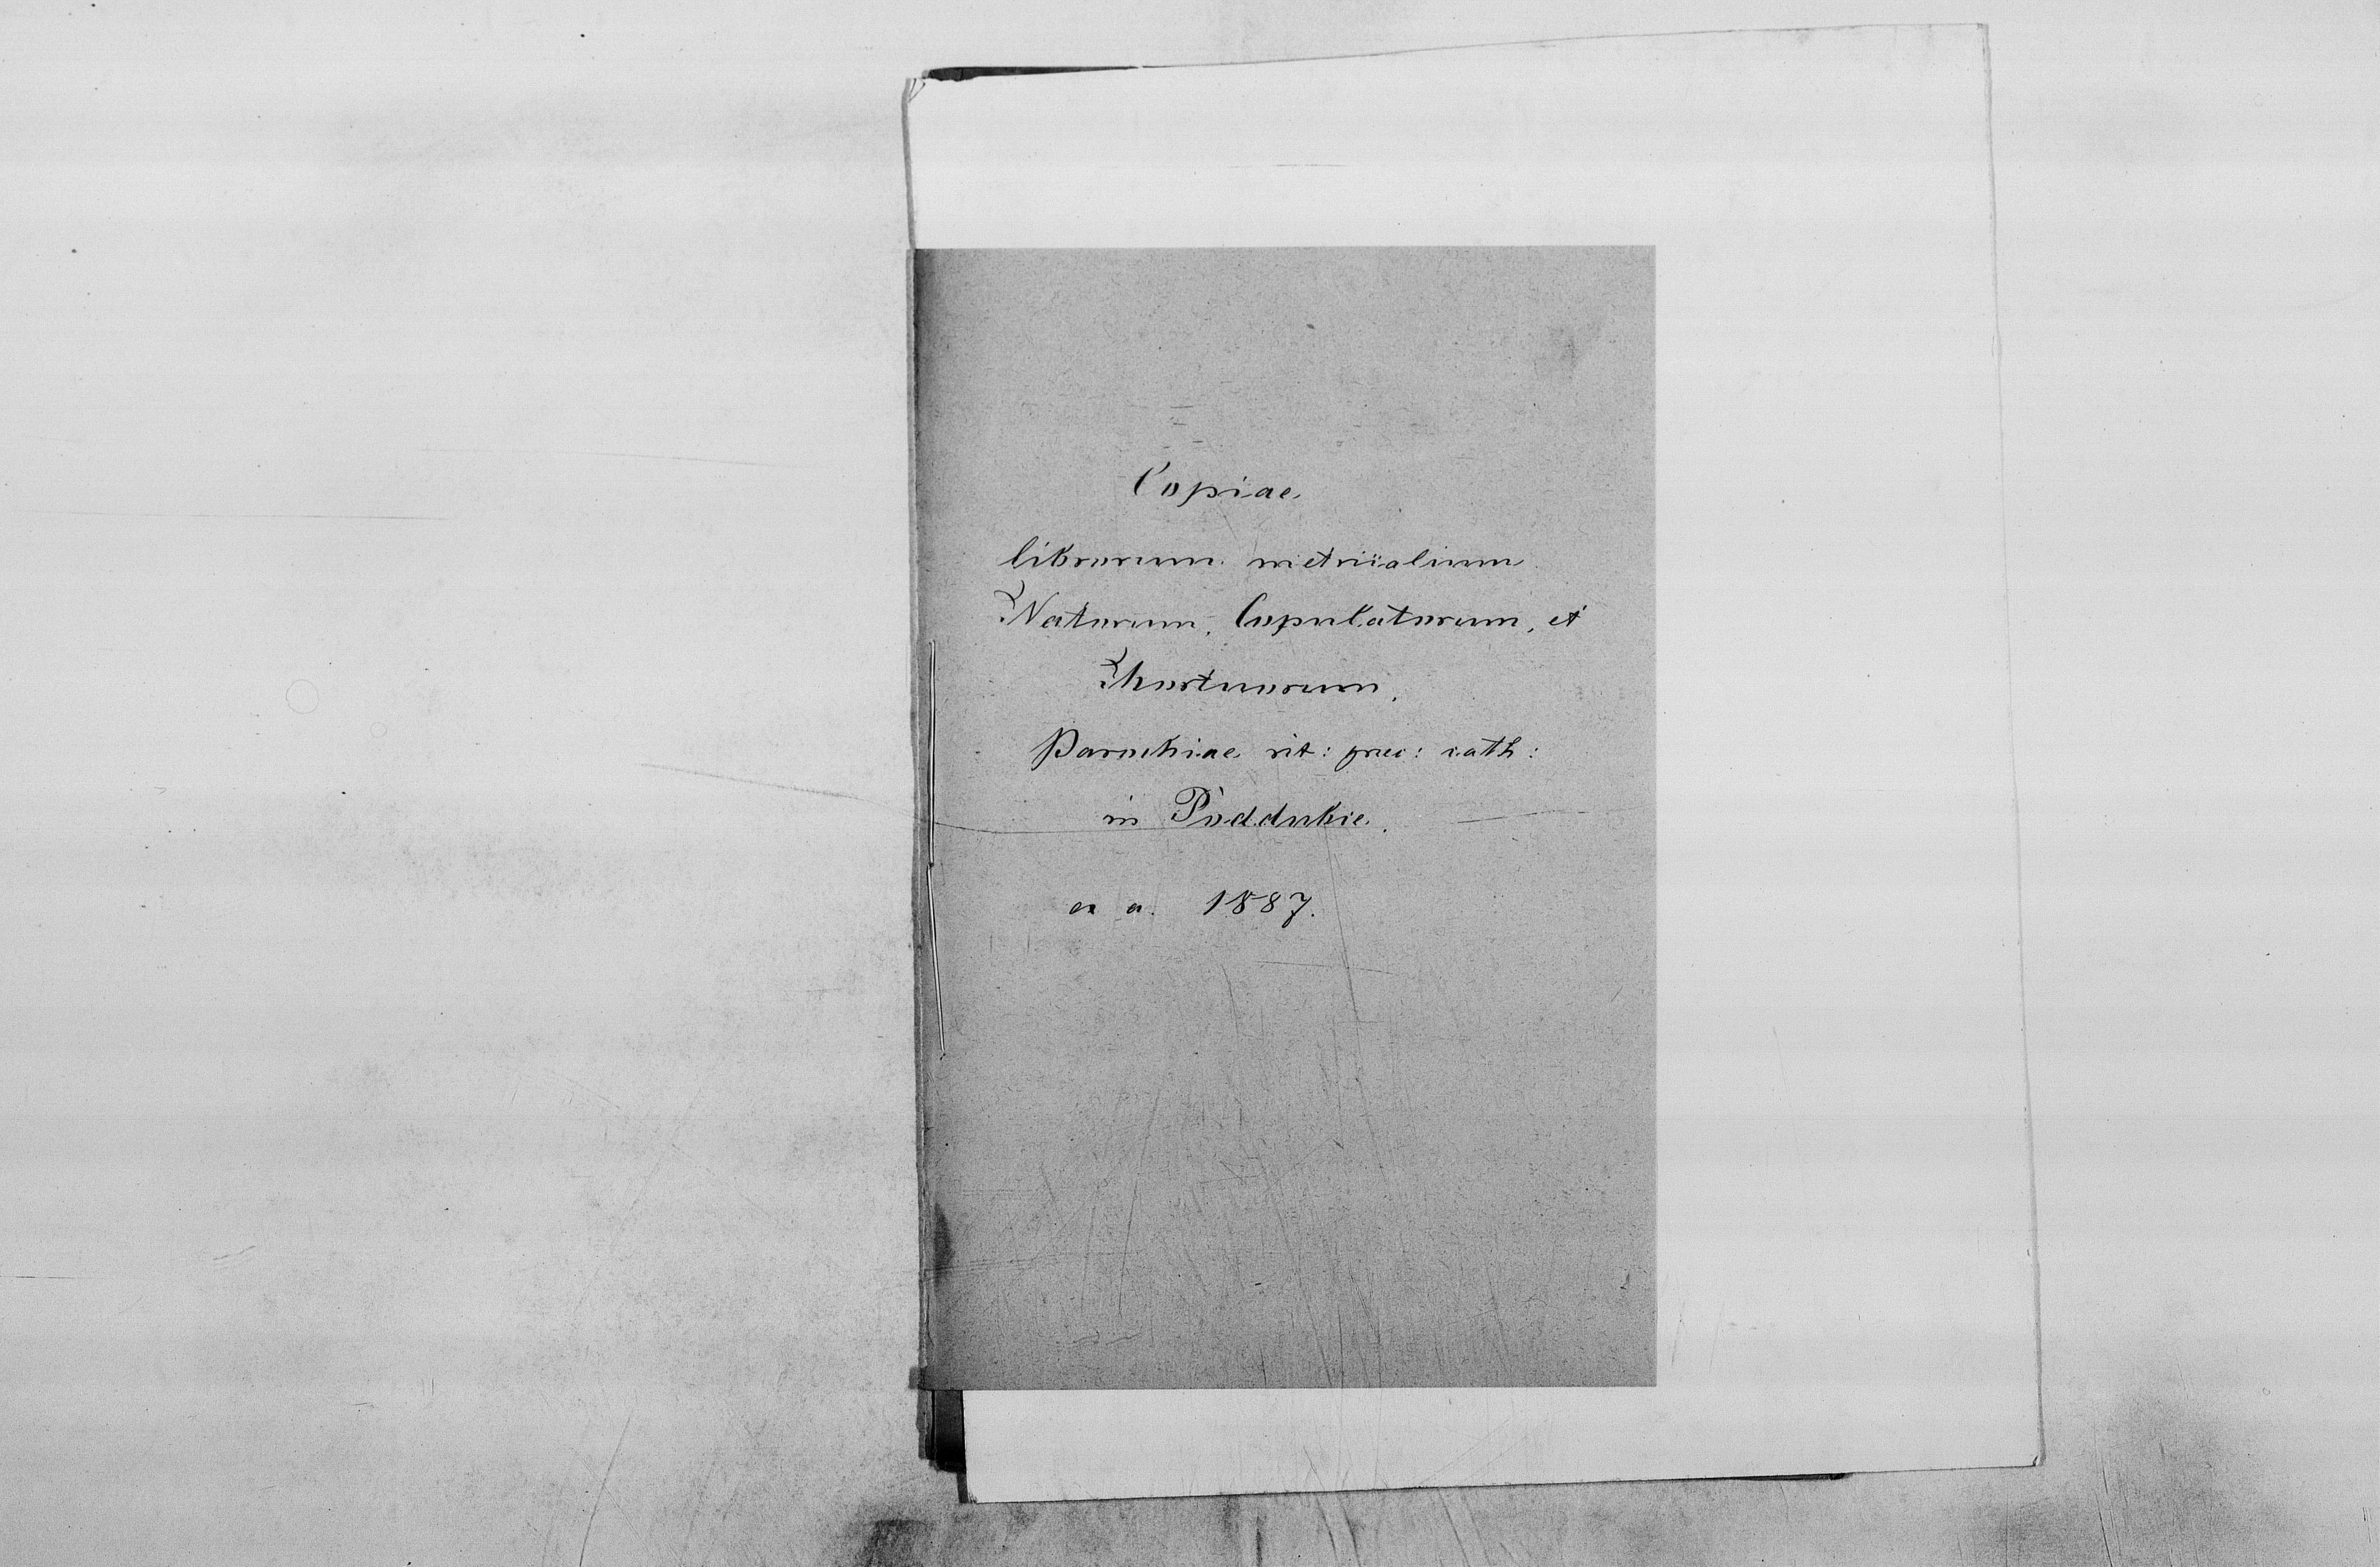 Copiae
librorum metricalium
Natorum, Copulatorum, et
Mortuorum,
Parochiae rit: graec: cath:
in Poddubie.
ex a. 1887.